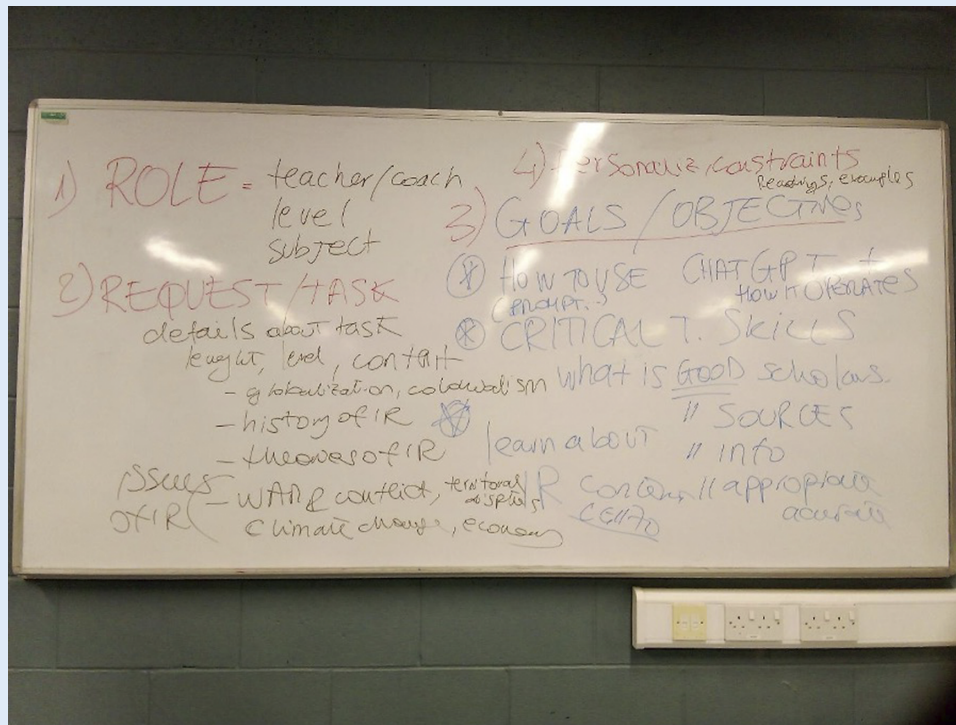 1) ROLE = teacher/coach
level
subject
2) REQUEST/TASK
details about task
lenght, level, content
- globalization, colonialism
- history of IR
- theories of IR
issues of IR
- WAR & conflict, territorial disputes
climate change, economy
4) Personaliz, constraints
Readings, examples
3) GOALS / OBJECTIVES
HOW TO USE CHATGPT +
(PROMPT..) HOW IT OPERATES
CRITICAL T. SKILLS
what is GOOD scholars.
" SOURCES
" info
learn about IR
" appropriate
accurate